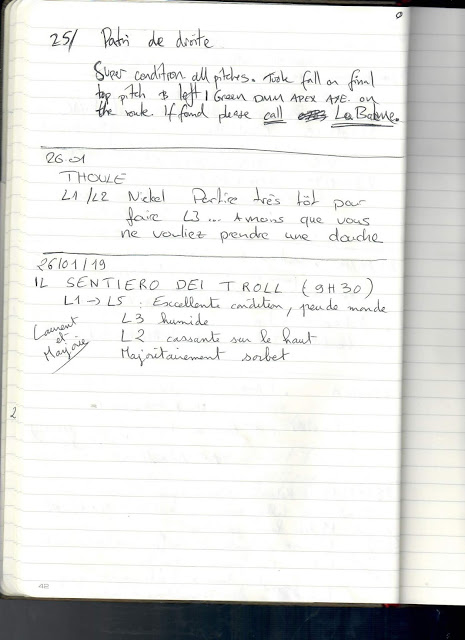 25/ Patri de droite
Super condition all pitches. Took fall on final
top pitch & left 1 Green DMM APEX AXE. on
the route. If found please call La Baume.
26.01
THOULE
L1/L2 Nickel Partire très tôt pour
faire L3... A moins que vous
ne vouliez prendre une douche
26/01/19
IL SENTIERO DEI TROLL (9H30)
L1 → L5 : Excellente condition, peu de monde
L3 humide
L2 cassante sur le haut
Majoritairement sorbet
Laurent
et
Marjorie
2
42